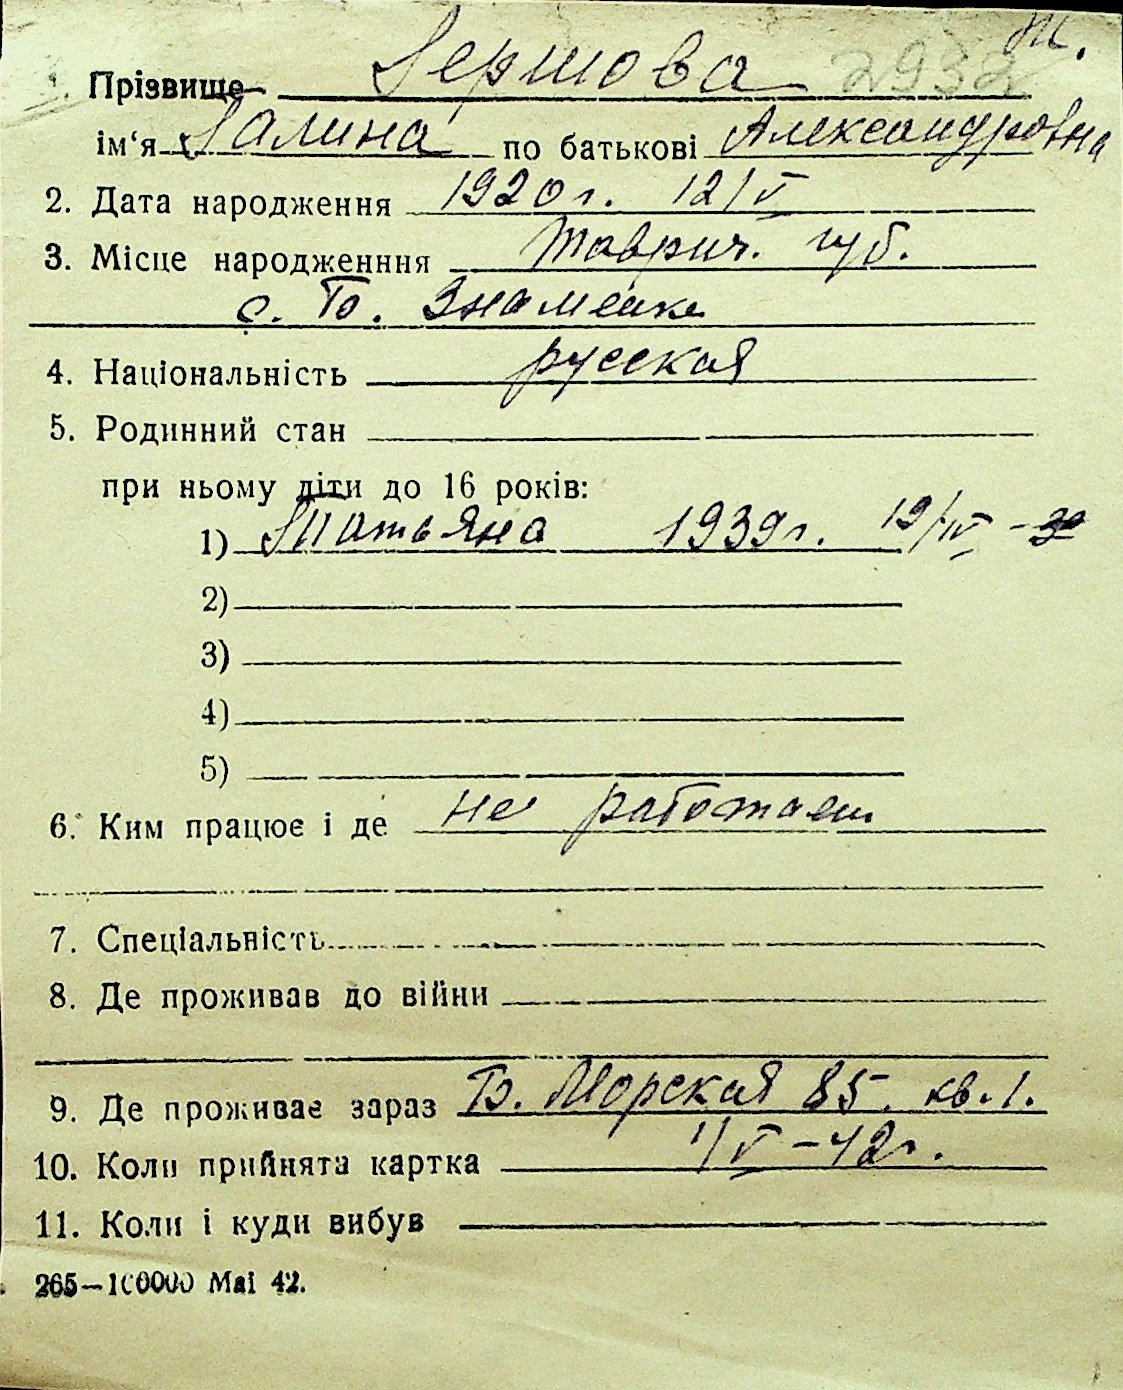 Ж.
2932
1. Прізвище Гершова
ім'я Галина по батькові Александровна
2. Дата народження 1920 г. 12/V
3. Місце народженння Таврич. губ.
с. Б. Знаменка
4. Національність русская
5. Родинний стан
при ньому діти до 16 років:
1) Татьяна 1939 г. 19/IV - 39
2)
3)
4)
5)
6. Ким працює і де не работает
7. Спеціальність
8. Де проживав до війни
9. Де проживає зараз Б. Морская 85 кв. 1.
10. Коли прийнята картка 1/V - 42 г.
11. Коли і куди вибув
265—100000 Маі 42.